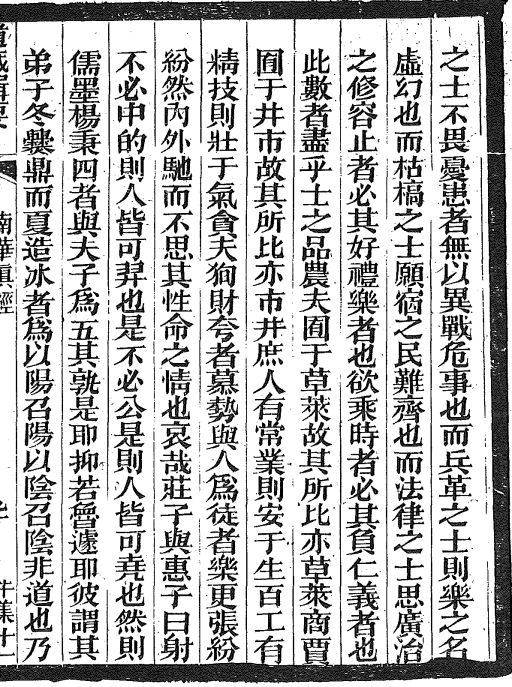 之士不畏憂患者無以異戰危事也而兵革之士則樂之名
虛幻也而枯槁之士願宿之民難齊也而法律之士思廣治
之修容止者必其好禮樂者也欲乘時者必其負仁義者也
此數者盡乎士之品農夫囿于草萊故其所比亦草萊商賈
囿于井市故其所比亦市井庶人有常業則安于生百工有
精技則壯于氣貪夫狥財夸者慕勢與人爲徒者樂更張紛
紛然內外馳而不思其性命之情也哀哉莊子與惠子曰射
不必中的則人皆可羿也是不必公是則人皆可堯也然則
儒墨楊秉四者與夫子爲五其孰是耶抑若魯遽耶彼謂其
弟子冬爨鼎而夏造冰者爲以陽召陽以陰召陰非道也乃
南華眞經